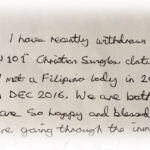 I have recently withdrawn
Christian
not a Filipino lady in 20
DEC 2016. We are both
are so happy and blessed
are going through the imm